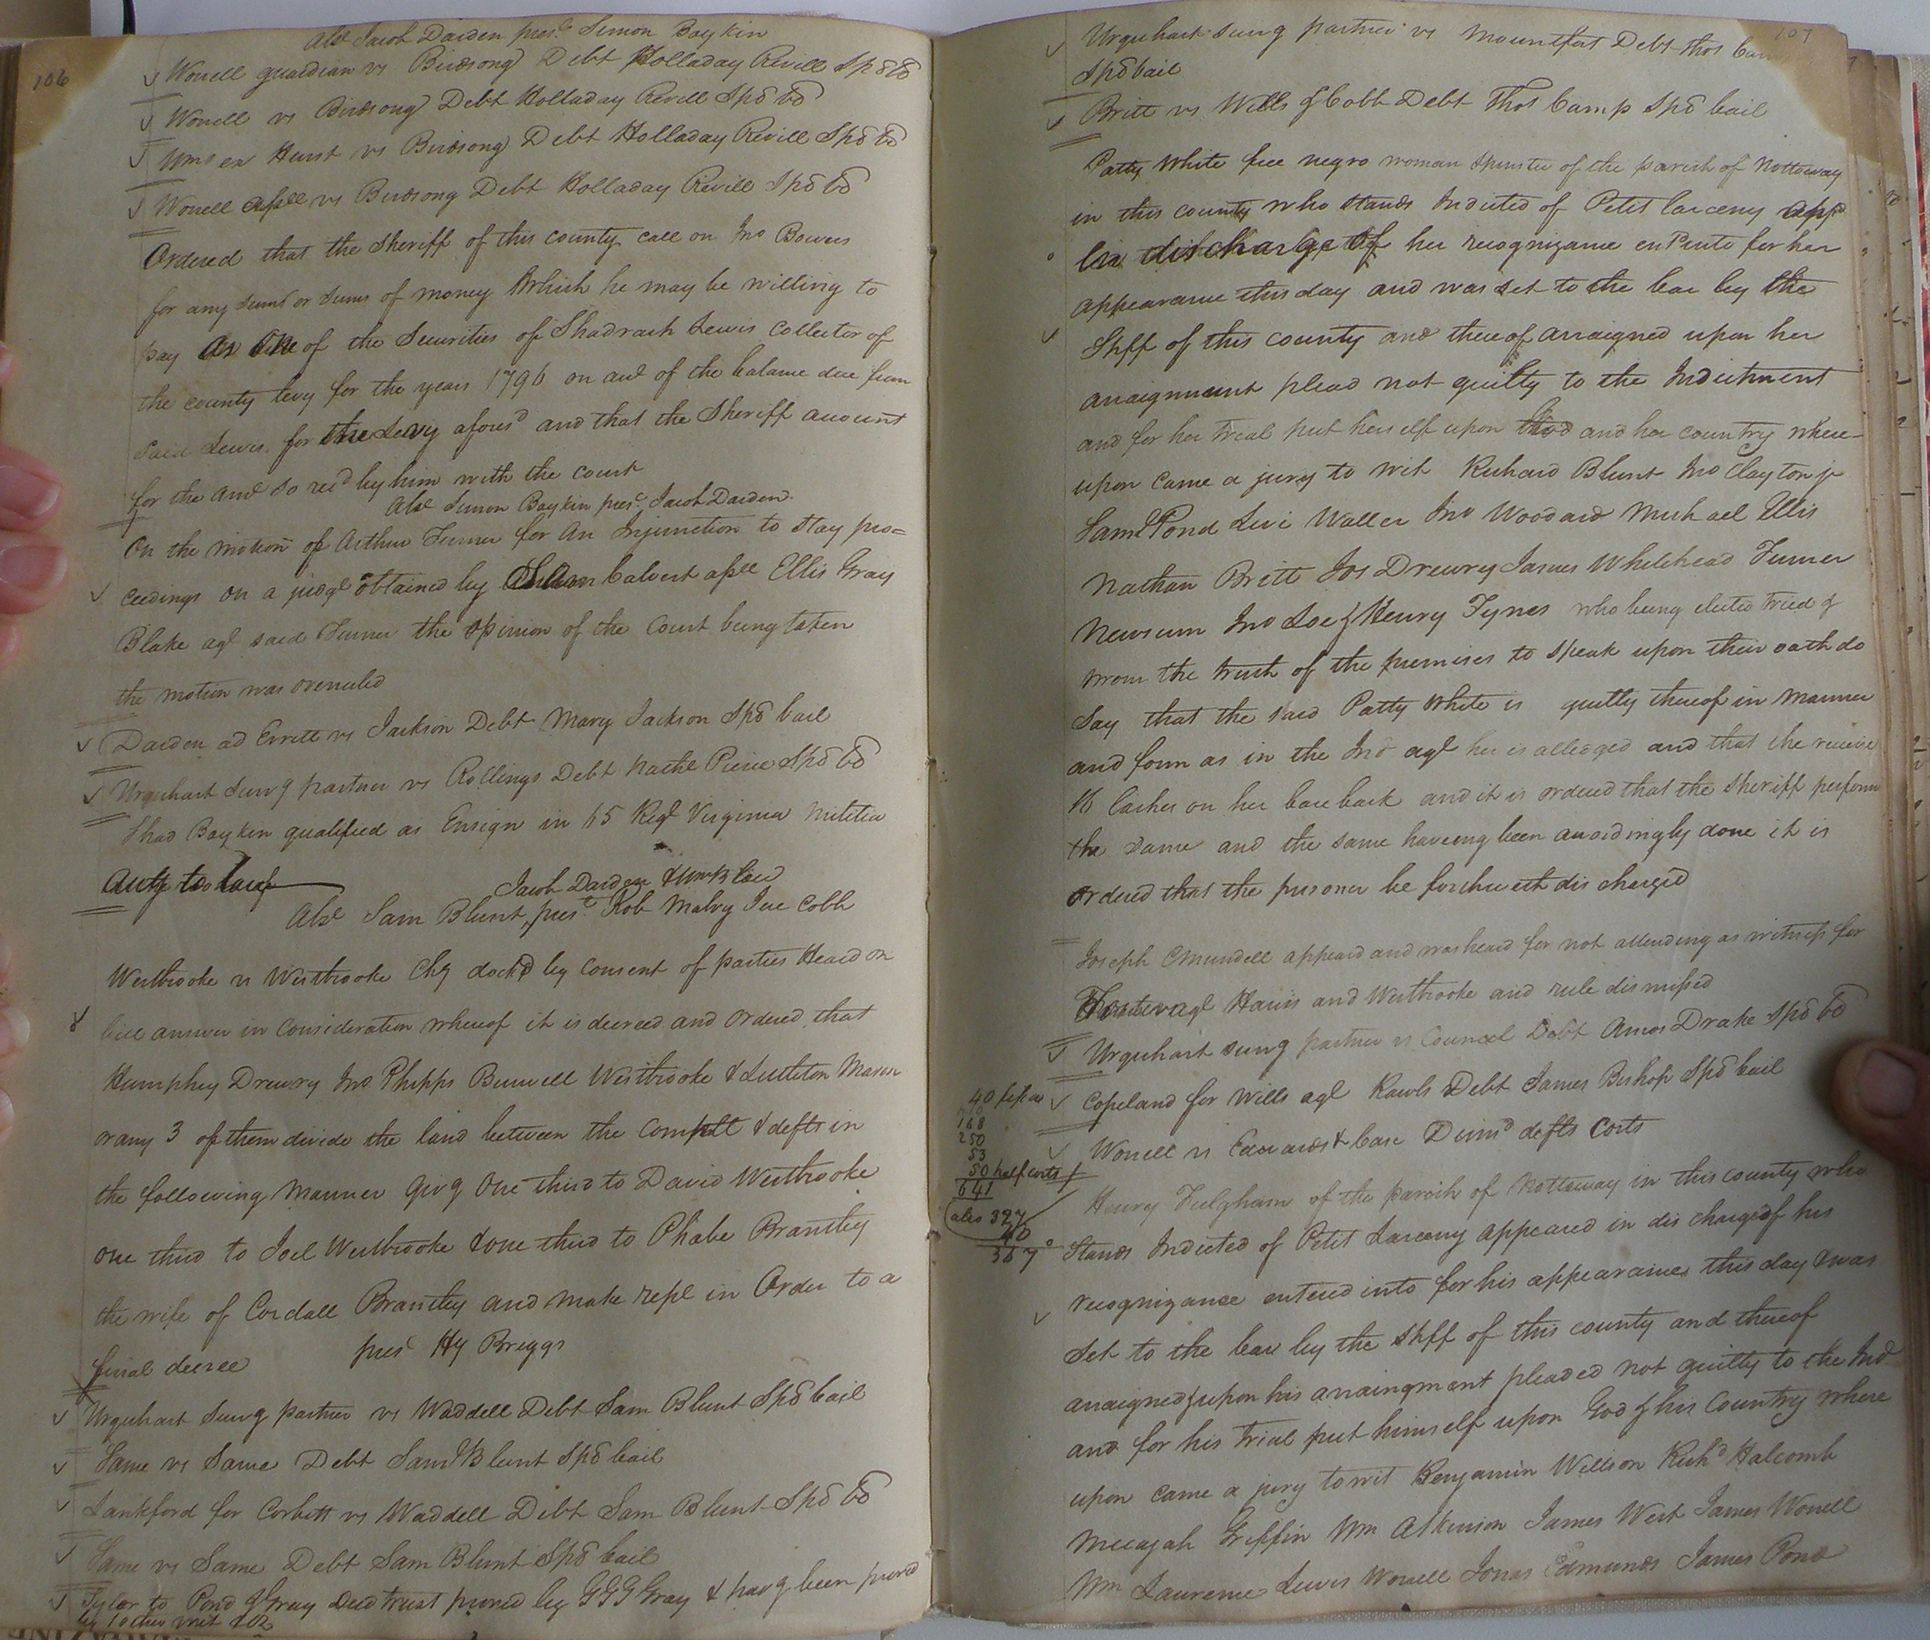 106
Abst Jacob Darden prest Simon Boykin
Worrell guardian vs Birdsong Debt Holladay Revill Spd bd
Worrell vs Birdsong Debt Holladay Revill Spd bd
Wms ex Hurst vs Birdsong Debt Holladay Revill Spd bd
Worrell assee vs Birdsong Debt Holladay Revill Spd bd
Ordered that the Sheriff of this county call on Jno Bowers
for any sum or sums of money which he may be willing to
pay as one of the Securities of Shadrach Lewis Collector of
the county levy for the year 1796 on acct of the balance due from
said Lewis for the Levy aforesd and that the Sheriff account
for the amt so recd by him with the court
Abst Simon Boykin prest Jacob Darden
On the motion of Arthur Turner for An Injunction to stay pro=
ceedings on a judgt obtained by Calvert assee Ellis Gray
Blake agt said Turner the opinion of the Court being taken
the motion was overruled
Darden ad Errett vs Jackson Debt Mary Jackson Spd bail
Urquhart survg partner vs Rollings Debt Nathl Pierce Spd bd
Shad Boykin qualified as Ensign in 65 Regt Virginia militia
accg to law
Jacob Darden
Abst Sam Blunt, prest Rob Malry Jne Cobb
Westbrooke vs Westbrooke Chy dockd by consent of parties Heard on
bill answer in consideration whereof it is decreed and ordered that
Humphrey Drewry Jno Phipps Burwell Westbrooke & Littleton Mason
or any 3 of them divide the land between the complt & defts in
the following manner givg One third to David Westbrooke
one third to Joel Westbrooke & one third to Phabe Brantley
the wife of Cordall Brantley and make rept in Order to a
final decree
prest Hy Briggs
Urquhart survg partner vs Waddell Debt Sam Blunt Spd bail
Same vs Same Debt Saml Blunt Spd bail
Lankford for Corbitt vs Waddell Debt Sam Blunt Spd bd
Same vs Same Debt Sam Blunt Spd bail
Tylor to Pond & Gray Deed trust proved by GGG Gray & havg been proved
by 1 other wit
107
Urquhart survg partner vs Mountfort Debt Thos Cam
Spd bail
Britt vs Wills & Cobb Debt Thos Camp Spd bail
Patty White free negro woman spinster of the parish of Nottoway
in this county who stands Indicted of Petit larceny appd
in discharge of her recognizance en for her
appearance this day and was set to the bar by the
Shff of this county and thereof arraigned upon her
arraignment plead not guilty to the Indictment
and for her trial put herself upon and her country where-
upon came a jury to wit Richard Blunt Jno Clayton jr
Saml Pond Levi Waller Jno Woodard Michael Ellis
Nathan Britt Jos Drewry James Whitehead Turner
Newsum Jno & Henry Tynes who being elected tried &
sworn the truth of the premises to speak upon their oath do
say that the said Patty White is guilty thereof in manner
and form as in the Ind agt her is alledged and that she receive
16 lashes on her bare back and it is ordered that the sheriff perform
the same and the same haveing been accordingly done it is
ordered that the prisoner be forthwith discharged
Joseph appeard and was heard for not attending as witness for
agt Harris and Westbrooke and rule dismissed
Urquhart survg partner vs Council Debt Amos Drake Spd bd
Copeland for Wills agt Rawls Debt James Bishop Spd bail
Worrell vs Edwards & Case Dismd defts Costs
40
168
250
53
50 half costs
641
also 327
40
367
Henry Fulgham of the parish of Nottoway in this county who
stands Indicted of Petit Larceny appeared in dis charge of his
recognizance entered into for his appearance this day & was
set to the bar by the Shff of this county and thereof
arraigned & upon his arraingment pleaded not guilty to the Ind
and for his trial put himself upon God & his Country where
upon came a jury towit Benjamin Willson Richd Halcomb
Mecajah Griffin Wm Atkinson James West James Worrell
Wm Laurence Lewis Worrell Jonas Edmunds James Pond